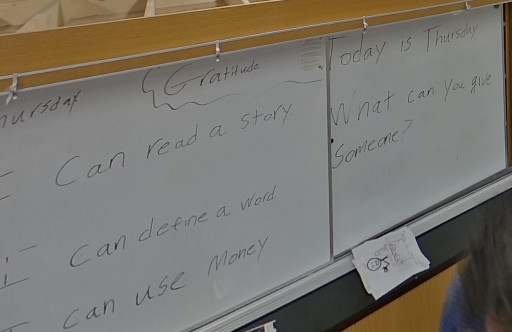 Thursday
Gratitude
I can read a story
I can define a word
I can use money
Today is Thursday
What can you give
Someone?